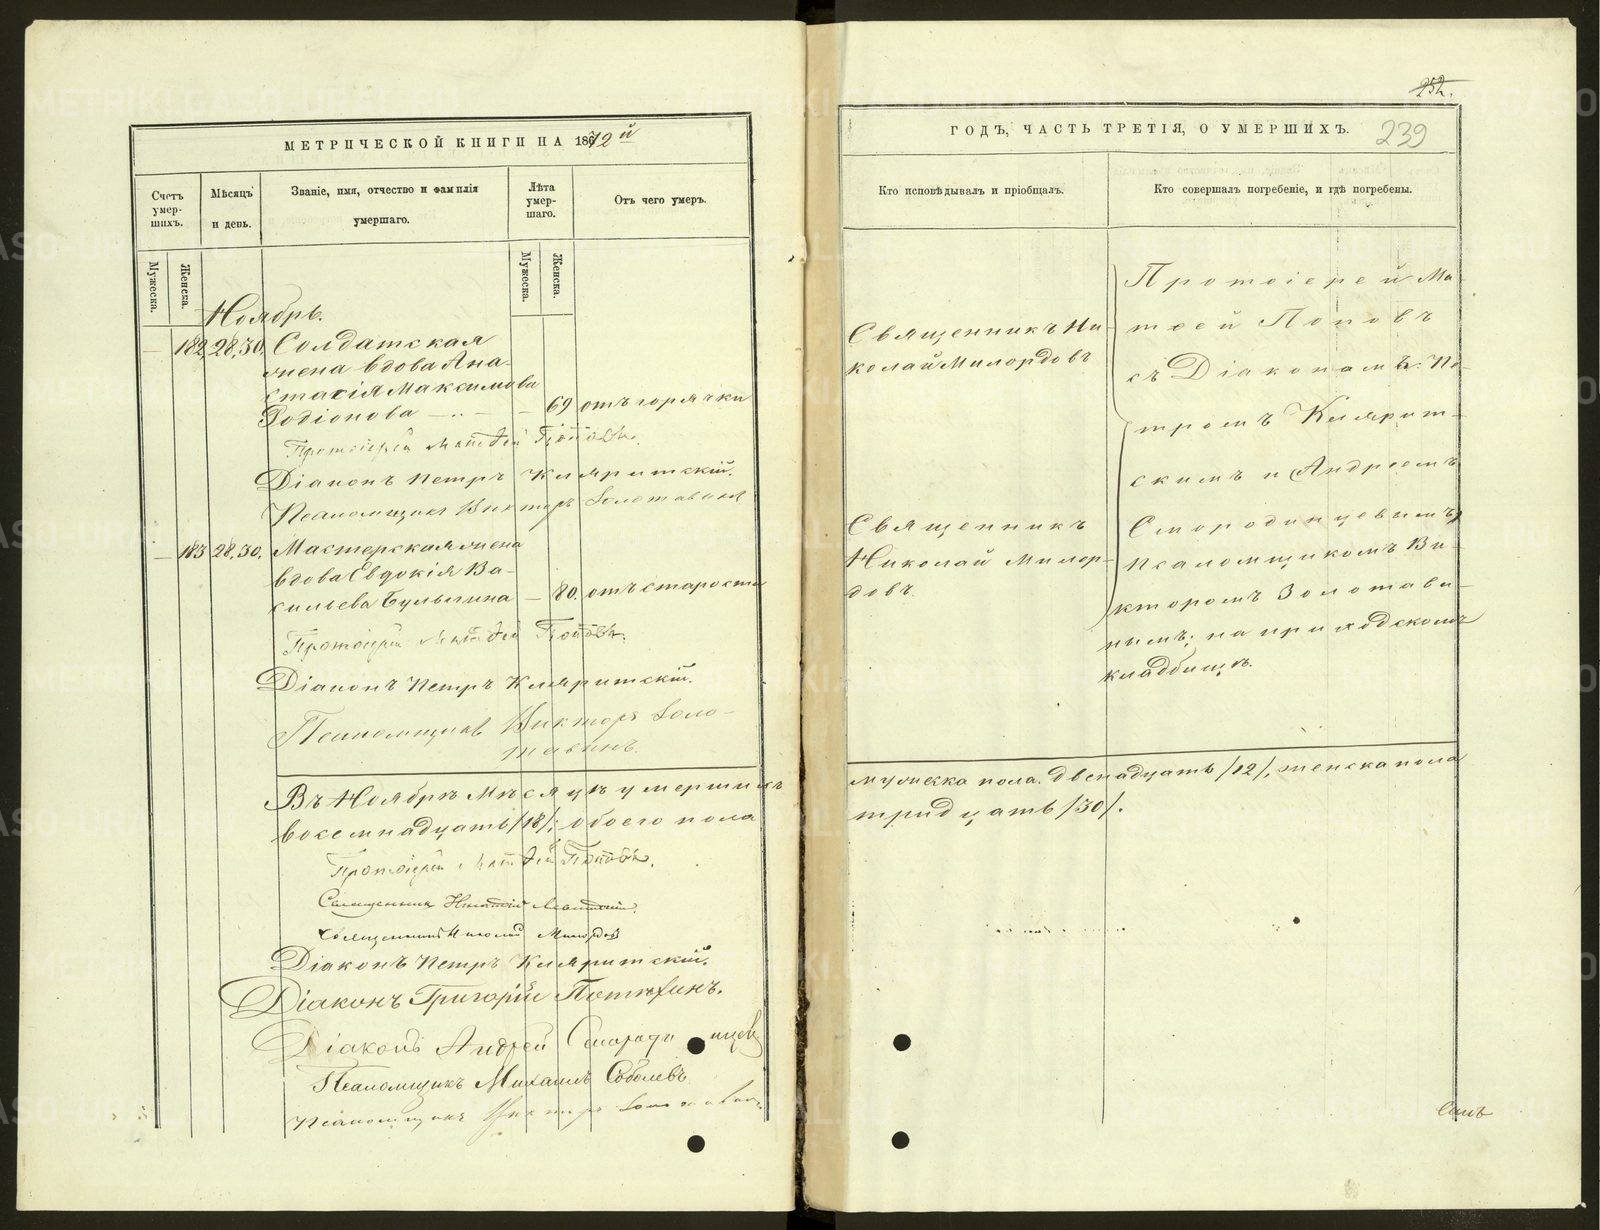 МЕТРИЧЕСКОЙ КНИГИ НА 1872й
Счетъ умер- шихъ.
Мѣсяцъ и день.
Званіе, имя, отчество и фамилія умершаго.
Лѣта умер- шаго.
Отъ чего умеръ.
Мужеска.
Женска.
Мужеска.
Женска.
Ноябрь.
— 182 28. 30. Солдатская
жена вдова Ана-
стасія Максимова
Родіонова — 69 отъ горячки
Протоіерей Матѳей Поповъ.
Діаконъ Петръ Кляритскій.
Псаломщикъ Викторъ Золотавинъ
— 183 28. 30. Мастерская жена
вдова Евдокія Ва-
сильева Булыгина — 80. отъ старости
Протоіерей Матѳей Поповъ.
Діаконъ Петръ Кляритскій.
Псаломщикъ Викторъ Золо-
тавинъ.
Въ Ноябрѣ мѣсяцѣ умершихъ
восемнадцать /18/; обоего пола
Протоіерей Матѳей Поповъ.
Священникъ
Священникъ Николай Милордовъ
Діаконъ Петръ Кляритскій.
Діаконъ Григорій Потѣхинъ.
Діаконъ Андрей Смородинцевъ
Псаломщикъ Михаилъ Соболевъ
Псаломщикъ Викторъ Золотавинъ
252.
ГОДЪ, ЧАСТЬ ТРЕТІЯ, О УМЕРШИХЪ.
239
Кто исповѣдывалъ и пріобщалъ.
Кто совершалъ погребеніе, и гдѣ погребены.
Священникъ Ни-
колай Милордовъ
Священникъ
Николай Милор-
довъ.
Протоіерей Ма-
тѳей Поповъ
съ Діаконамъ: Пе-
тромъ Клярит-
скимъ и Андреемъ
Смородинцевымъ,
Псаломщикомъ Ви-
кторомъ Золотави-
нымъ; на приходскомъ
кладбищѣ.
мужеска пола. двенадцать /12/, женска пола
тридцать /30/.
METRIKI.GASO-URAL.RU